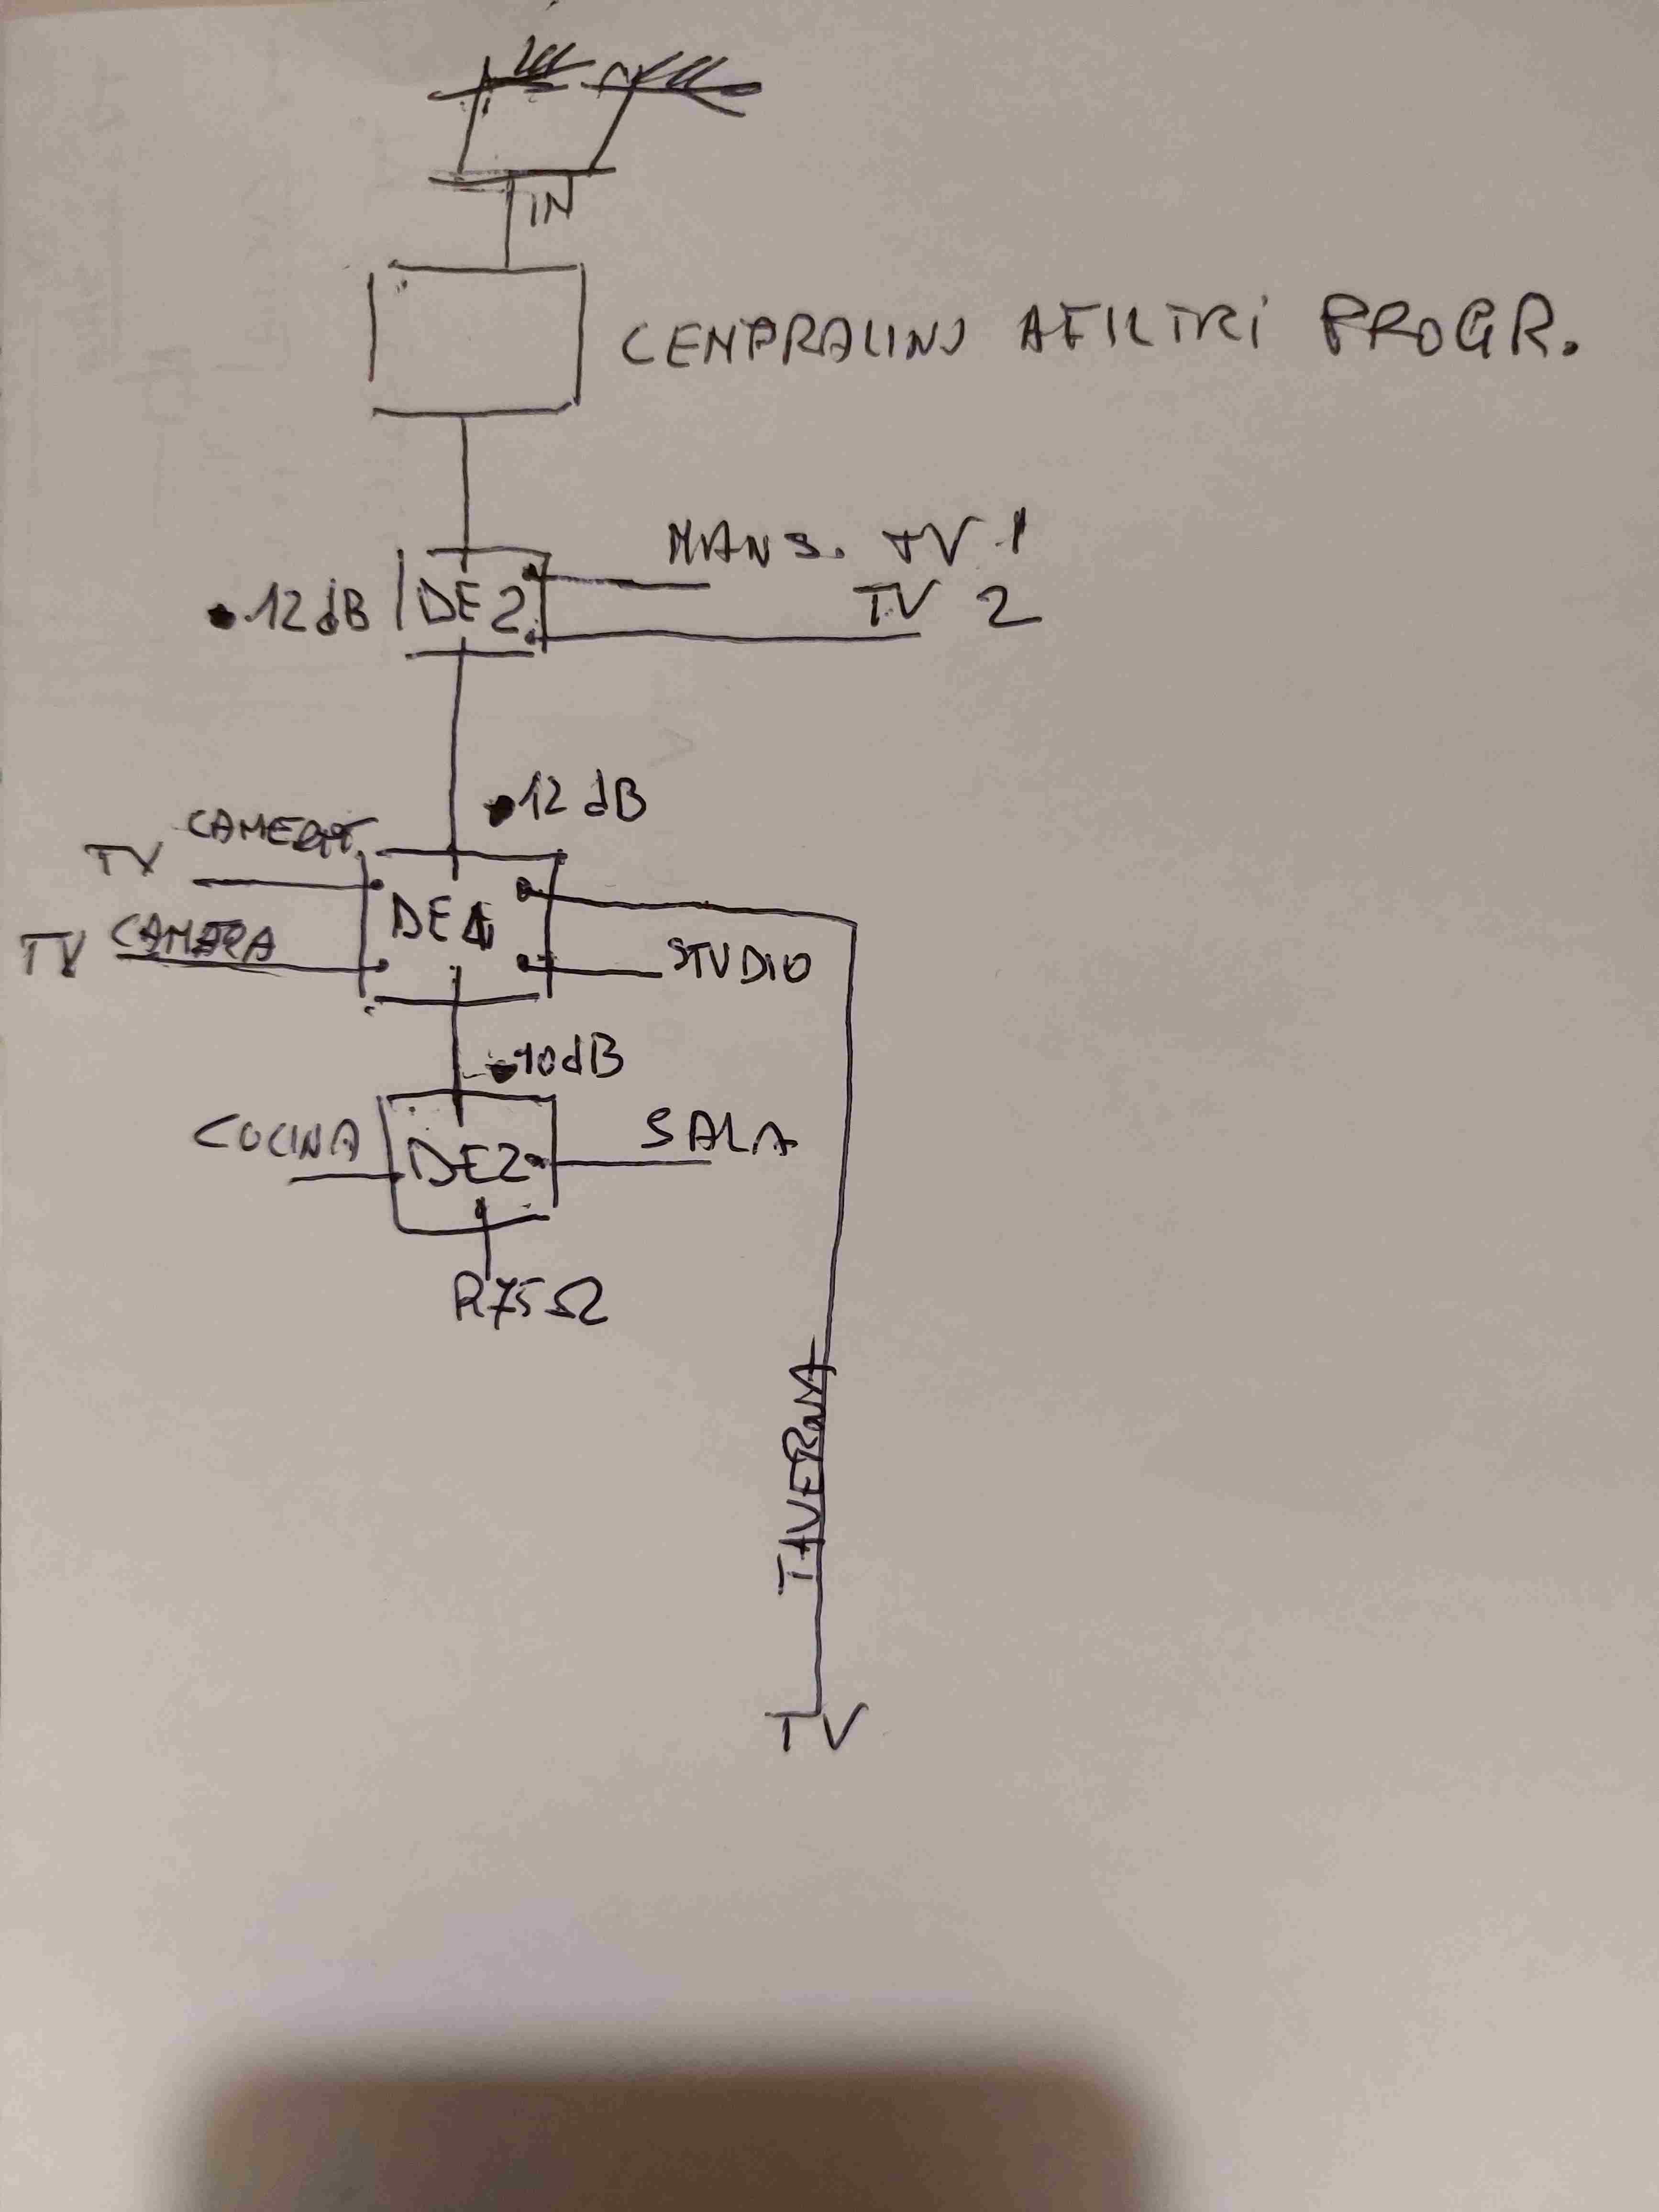 IN
CENTRALINO A FILTRI PROGR.
MANS. TV 1
TV 2
12 dB
DE2
12 dB
TV CAMERA
DE4
TV CAMERA
STUDIO
10dB
COCINA
DE2
SALA
R75Ω
TAVERNA
TV